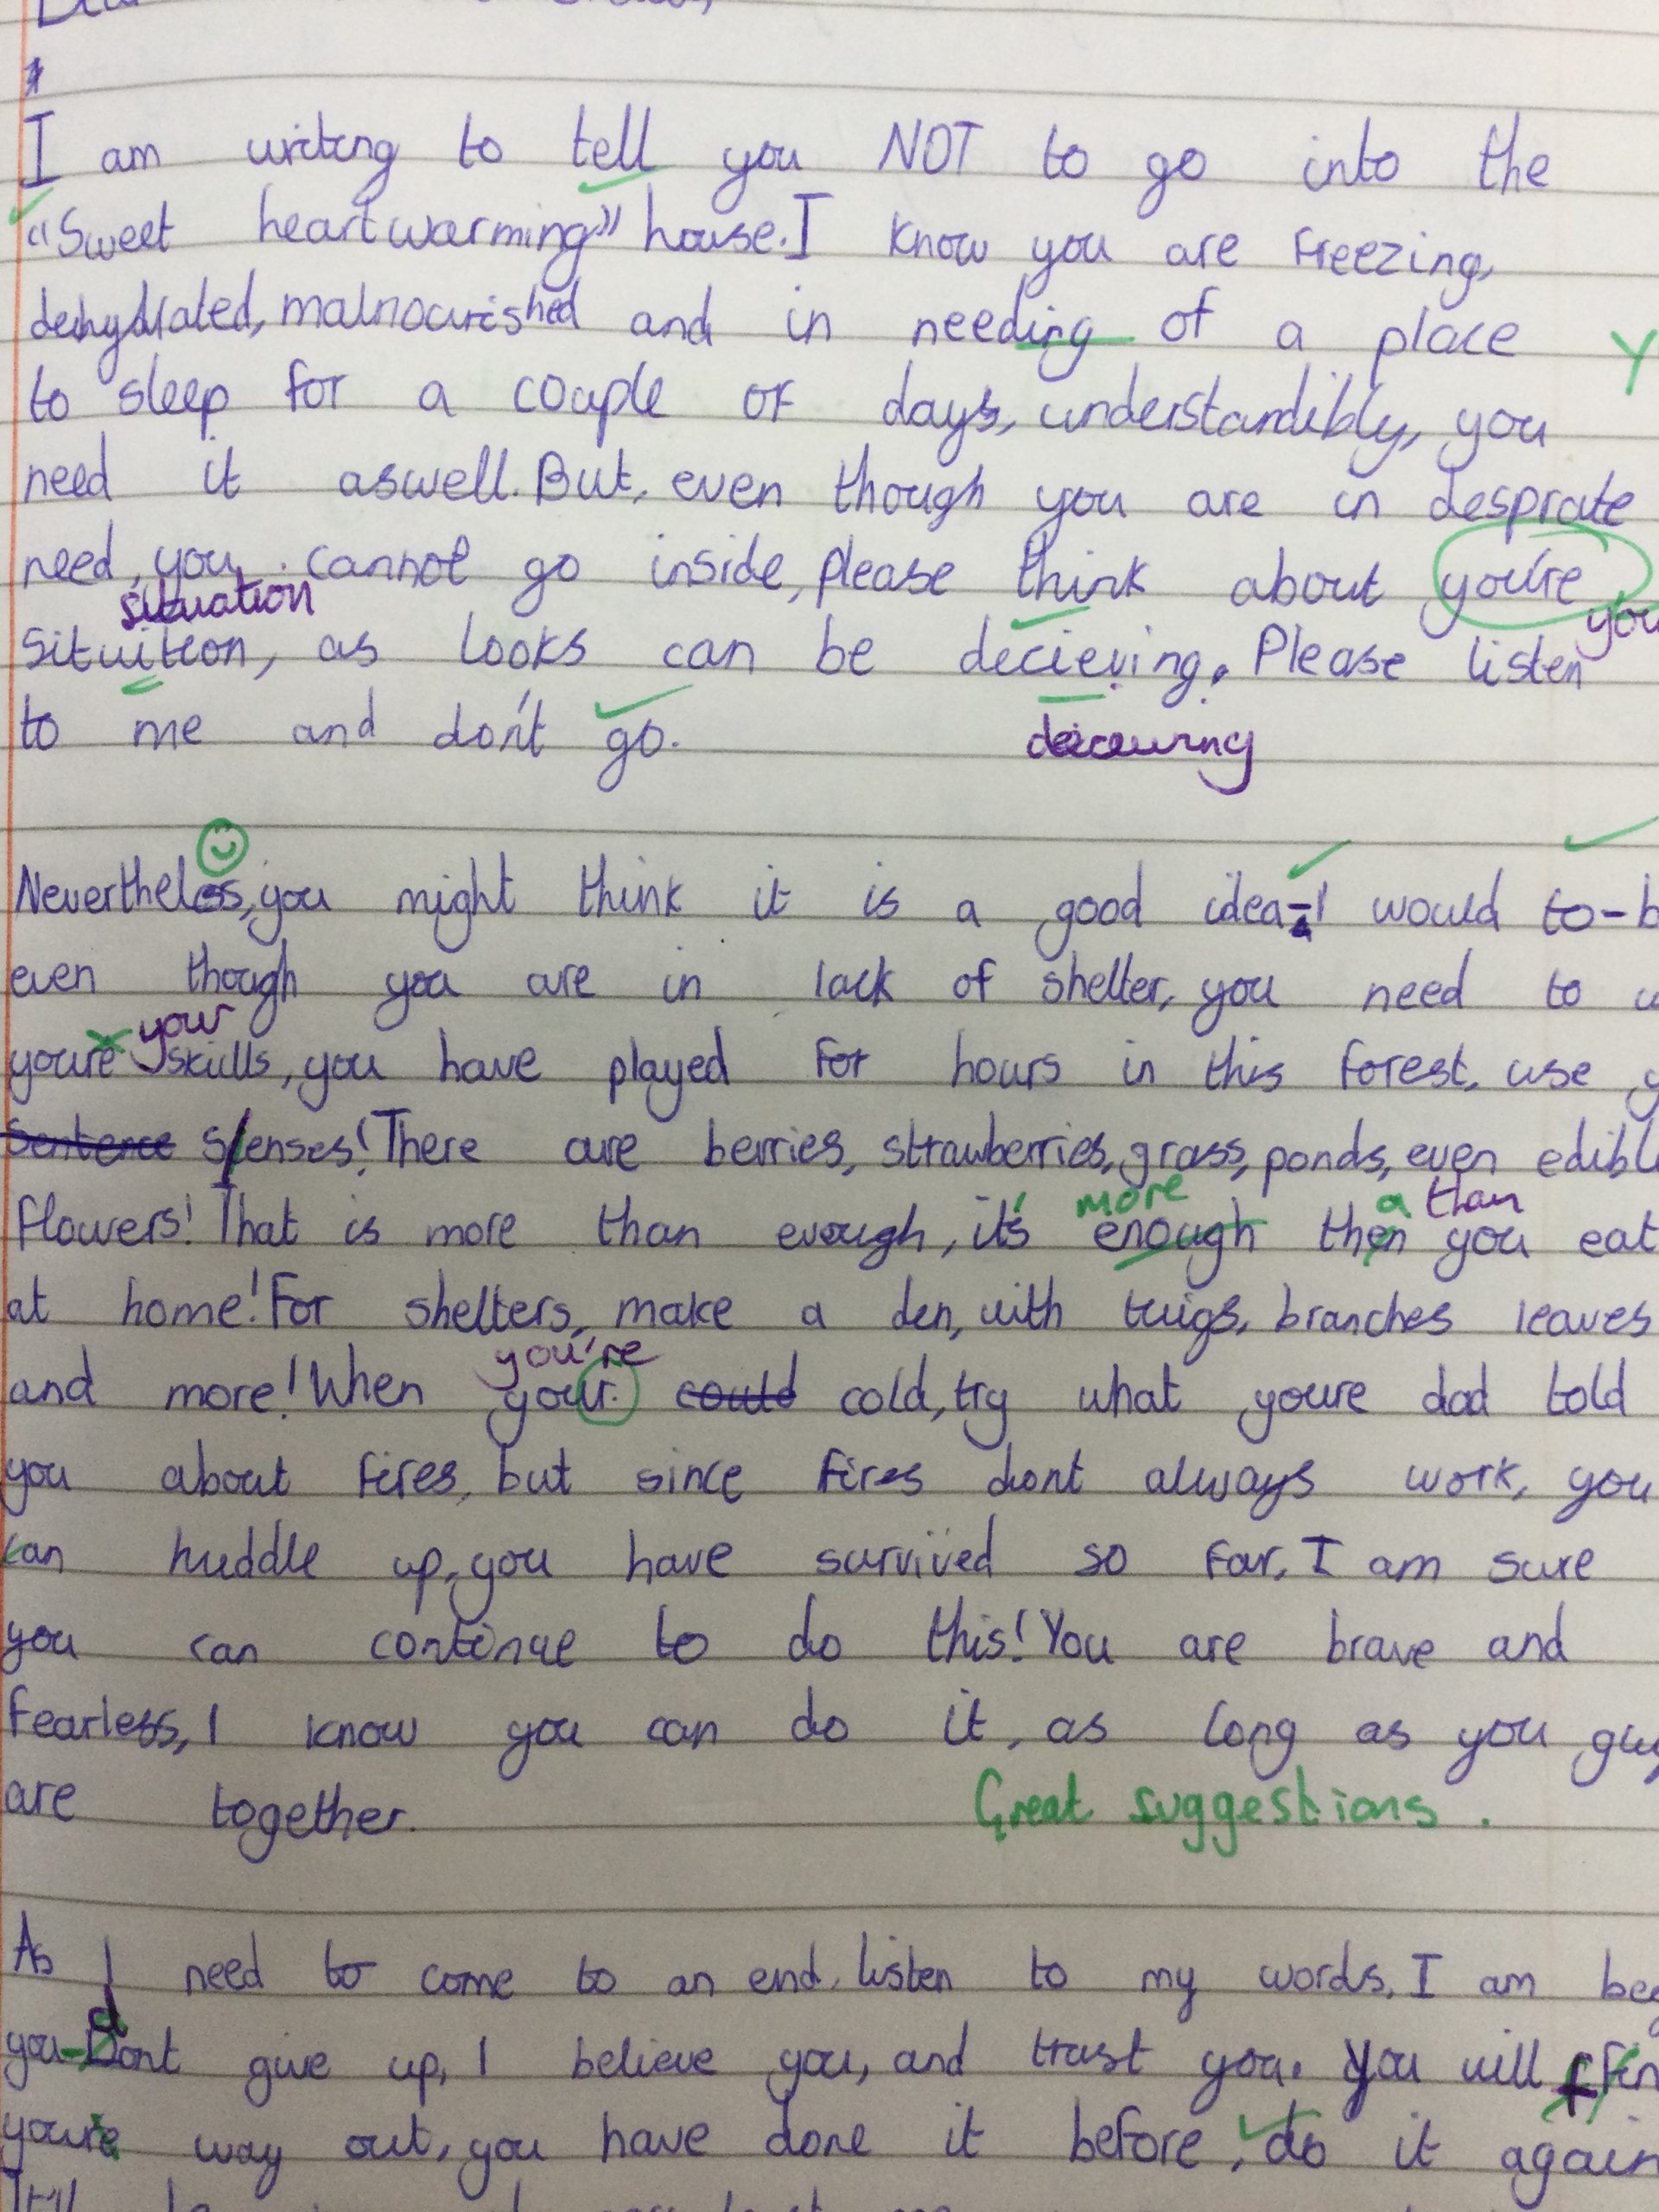 I am writing to tell you NOT to go into the
"Sweet heartwarming" house. I know you are freezing,
dehydrated, malnourished and in needing of a place
to sleep for a couple of days, understandibly, you
need it aswell. But, even though you are in desprate
need, you cannot go inside, please think about you're
situation
you
Situition, as looks can be decieving. Please listen
to me and don't go.
Nevertheless, you might think it is a good idea - I would to - b
even though you are in lack of shelter, you need to u
your
youre skills, you have played for hours in this forest, use y
Sentence senses! There are berries, strawberries, grass, ponds, even edibl
more a than
flowers! That is more than enough, it's enough then you eat
at home! For shelters, make a den, with twigs, branches leaves
you're
and more! When your could cold, try what youre dad told
you about fires, but since fires dont always work, you
can huddle up, you have survived so far, I am sure
you can continue to do this! You are brave and
fearless, I know you can do it, as long as you guy
are together.
Great suggestions.
As I need to come to an end, listen to my words, I am beg
d
you - Dont give up, I believe you, and trust you. You will fin
youre way out, you have done it before, do it again